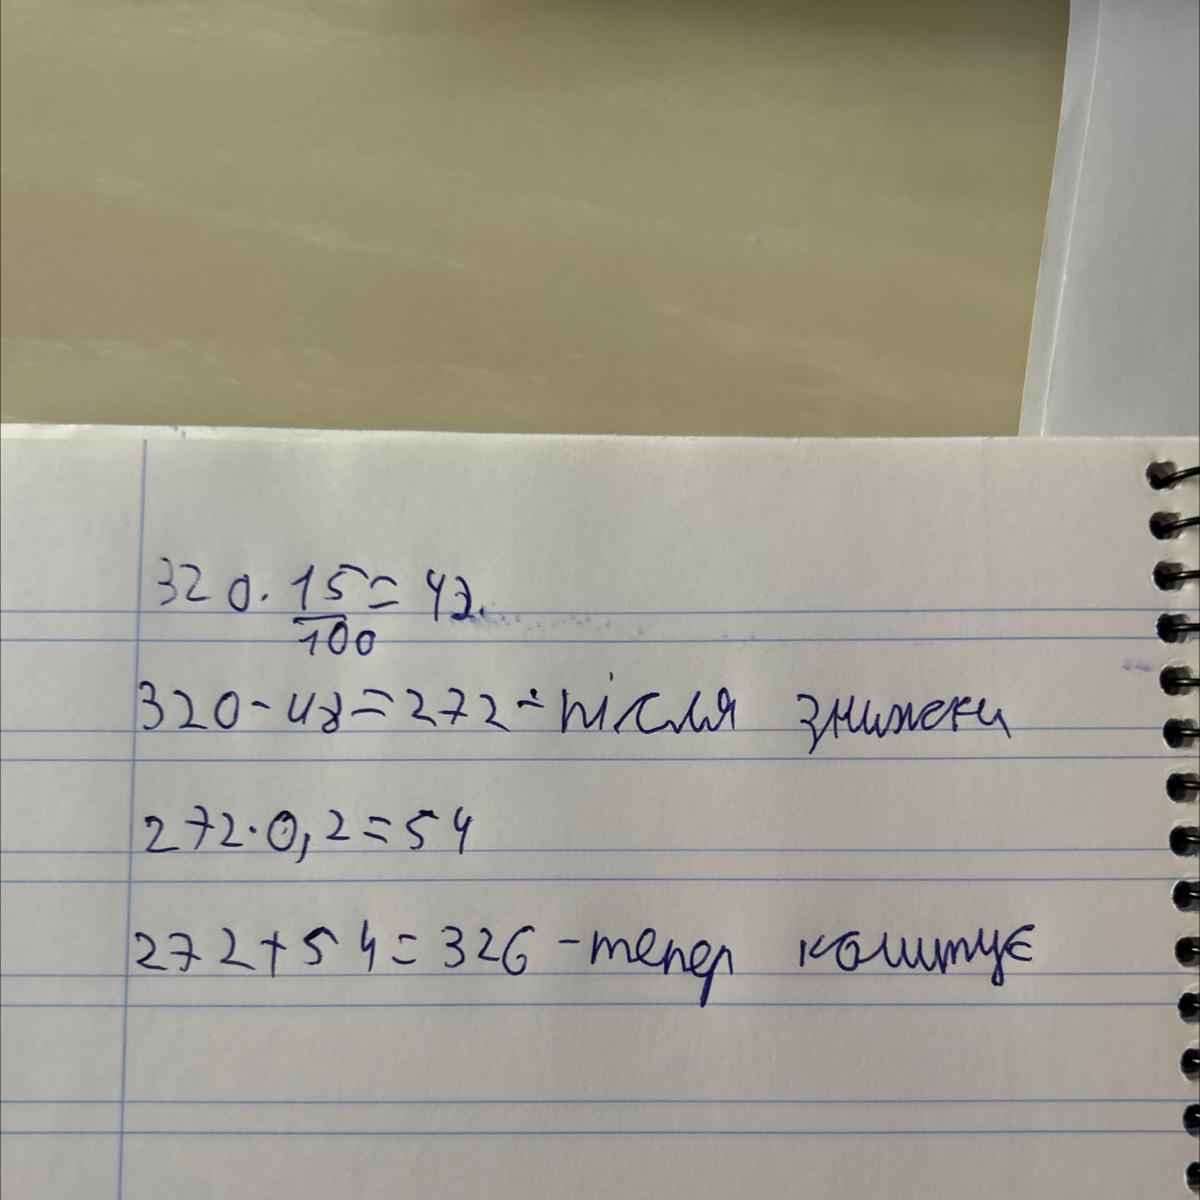 320 · 15/100 = 48.
320 - 48 = 272 - після знижки
272 · 0,2 = 54
272 + 54 = 326 - тепер коштує